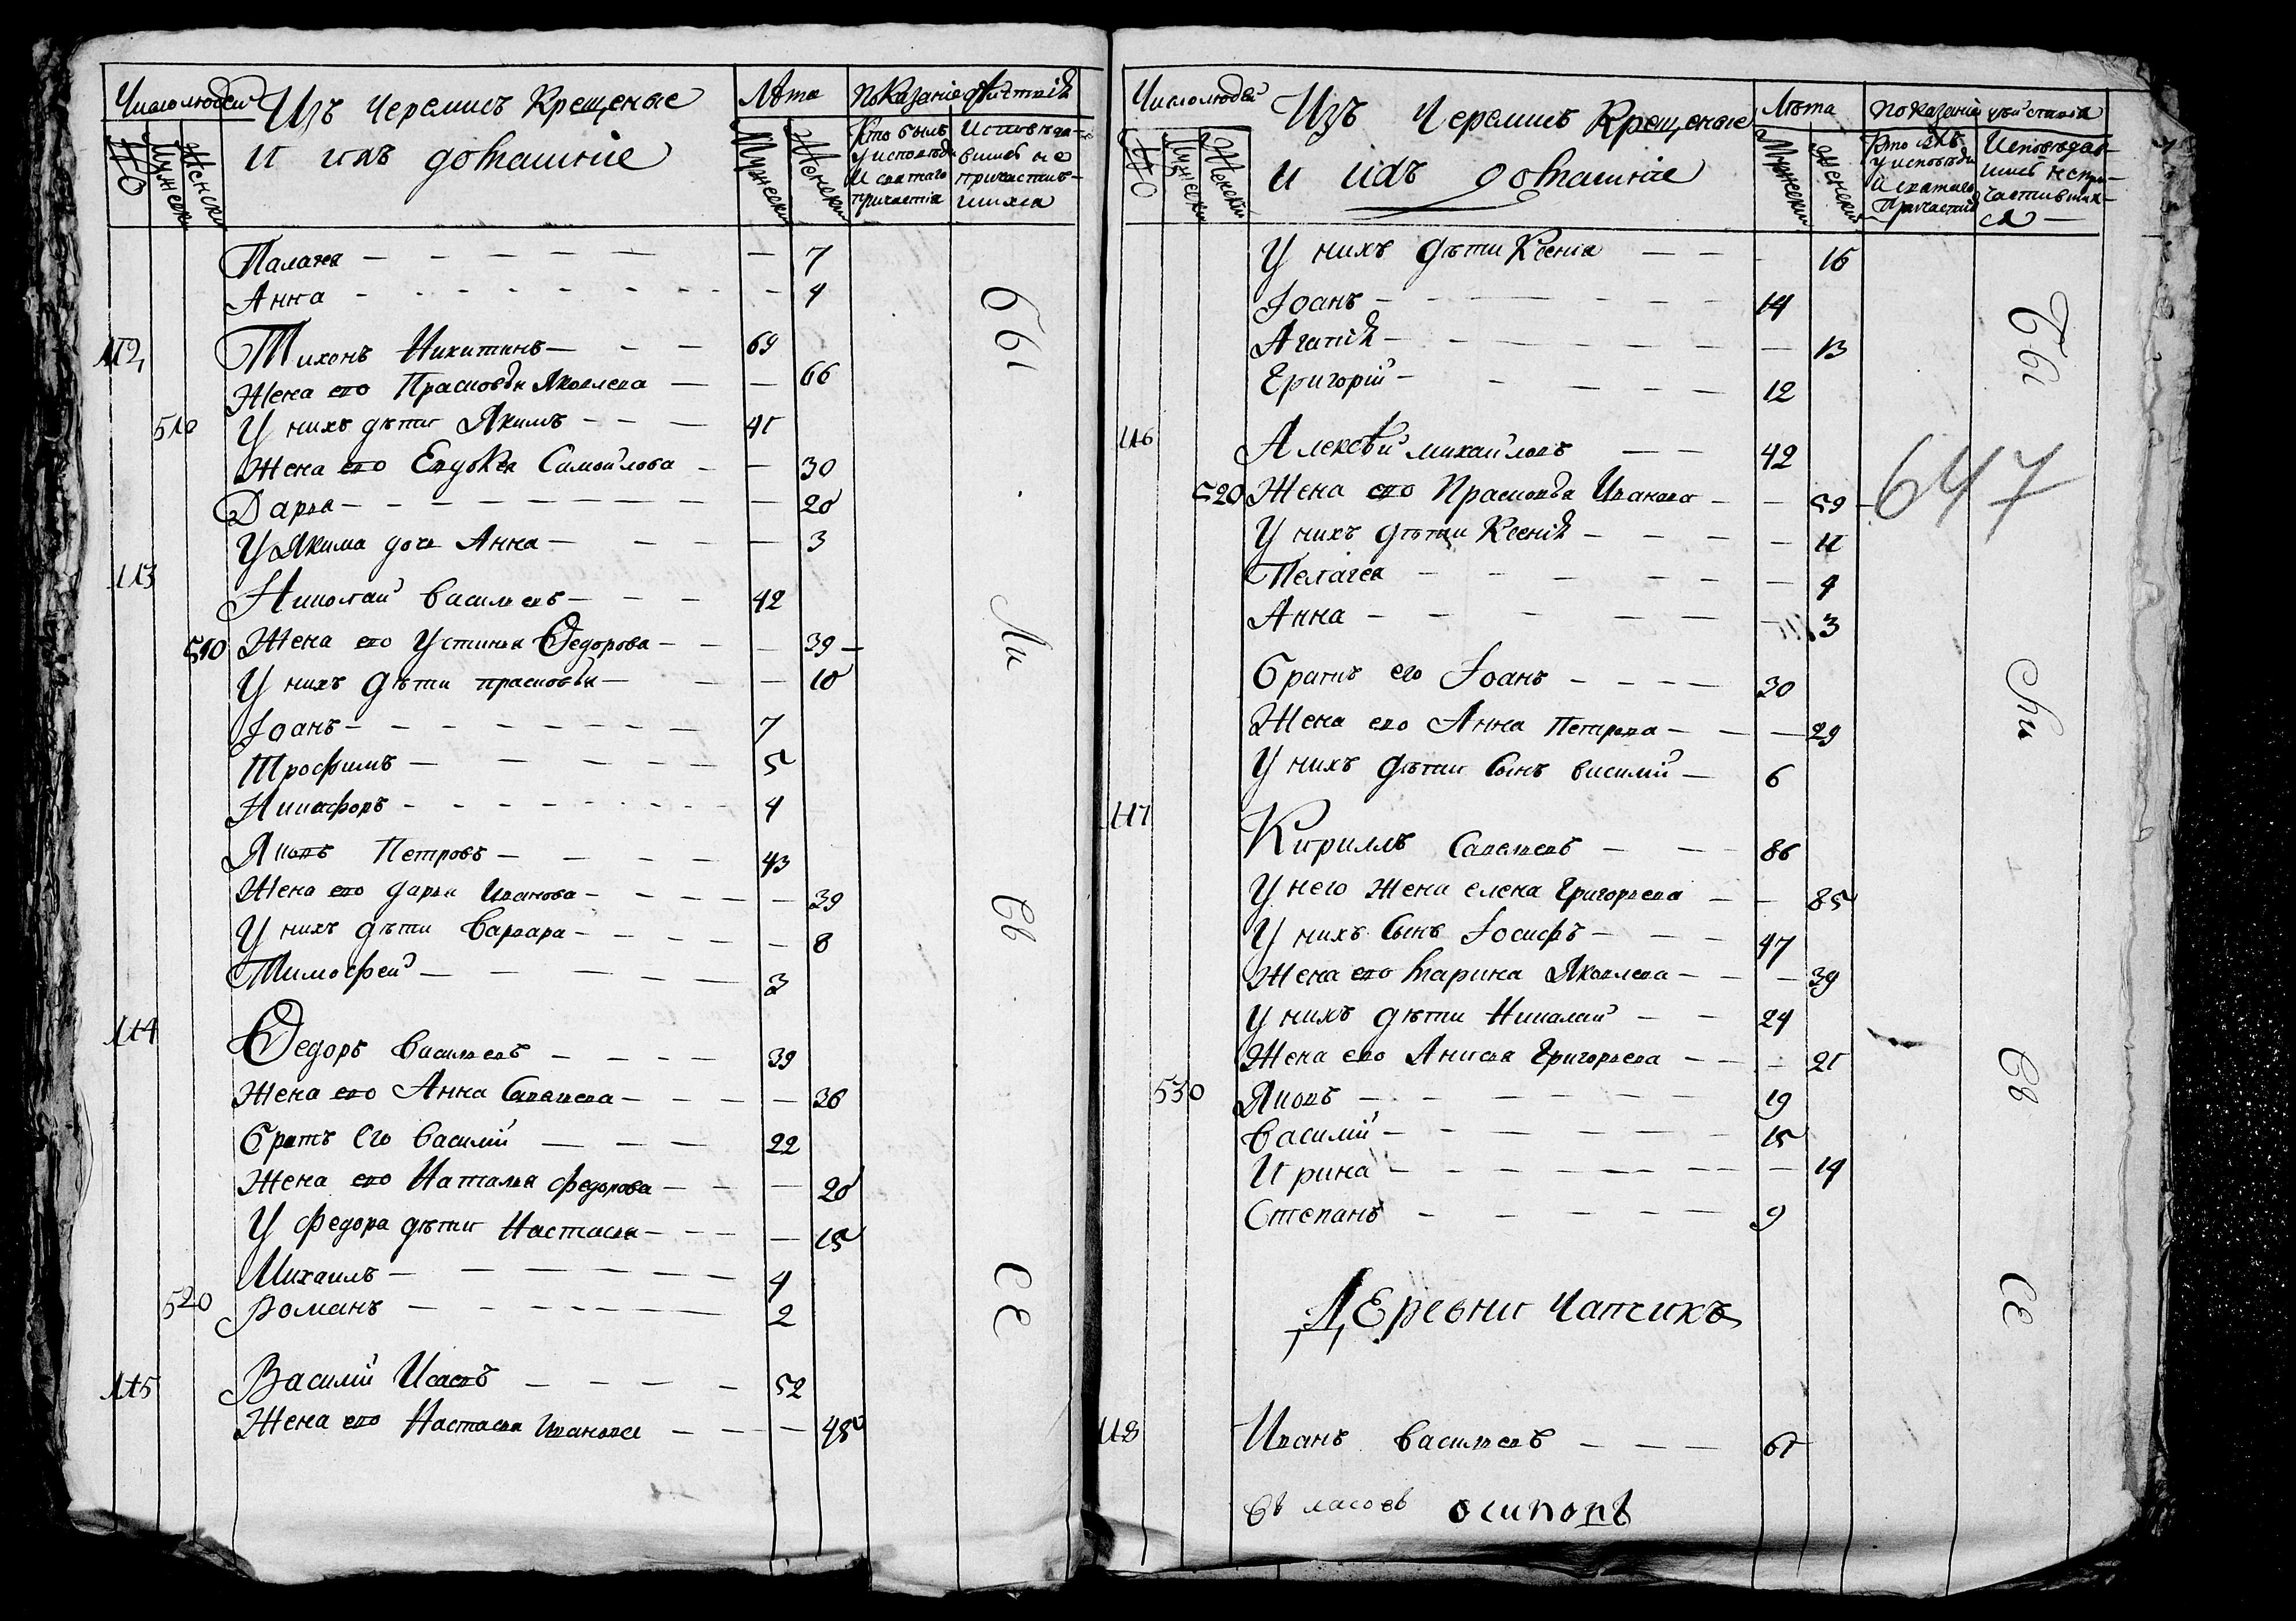 Число людей Изъ Черемисъ Крещеные Лѣта показаніе дѣйствій
и ихъ домашніе
№ Мужески Женски Мужески Женски
Кто былъ у исповѣди и святаго причастія
Исповѣдавшись не причастившихся
Палагея — 7
Анна — 4
112 Тихонъ Никитинъ — 69
Жена его Прасковья Яковлева — 66
510 У нихъ дѣти Якимъ — 41
Жена его Евдокея Самойлова — 30
Дарья — 20
У Якима дочь Анна — 3
113 Николай Васильевъ — 42
510 Жена его Устинья Ѳедорова — 39
У нихъ дѣти Прасковья — 10
Іоанъ — 7
Трофимъ — 5
Никифоръ — 4
Яковъ Петровъ — 43
Жена его Дарья Иванова — 39
У нихъ дѣти Варвара — 8
Тимофей — 3
114 Ѳедоръ Васильевъ — 39
Жена его Анна Савельева — 36
Братъ Его Василій — 22
Жена его Наталья Федорова — 20
У Федора дѣти Настасья — 15
Михаилъ — 4
520 Романъ — 2
115 Василій Исаевъ — 52
Жена его Настасья Иванова — 48
бы
ли
Св
Се
Число людей Изъ Черемисъ Крещеные Лѣта показаніе дѣйствія
и ихъ домашніе
№ Мужески Женскій Мужески Женски
Кто былъ у исповѣди и святаго Причастія
Исповѣдавшись не причастившихся
У нихъ дѣти Ксенія — 16
Іоанъ — 14
Агапія — 13
Григорій — 12
116 Алексѣй Михайловъ — 42
520 Жена его Прасковья Иванова — 59
647
У нихъ дѣти Ксенія — 11
Пелагея — 4
Анна — 3
Братъ его Іоанъ — 30
Жена его Анна Петрова — 29
У нихъ дѣти Сынъ Василій — 6
117 Кирилъ Савельевъ — 86
У него жена елена Григорьева — 85
У нихъ Сынъ Іосифъ — 47
Жена его Марина Яковлева — 39
У нихъ дѣти Николай — 24
Жена его Анисья Григорьева — 21
530 Яковъ — 19
Василій — 15
Ирина — 14
Степанъ — 9
Деревни
118 Иванъ Васильевъ — 61
осиповъ
бы
ли
Св
Се